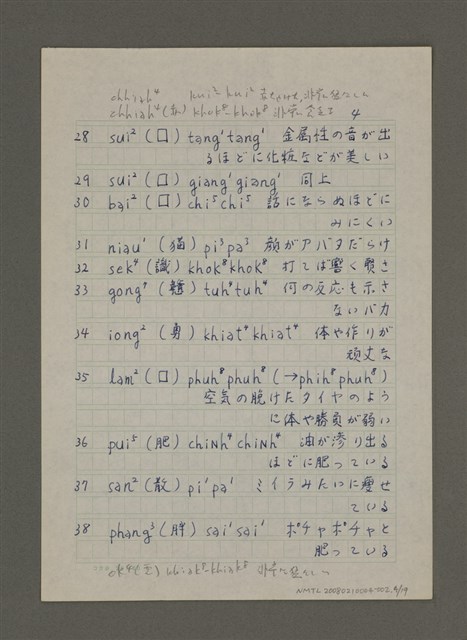 chhiah⁴ kui² kui²
chhiah⁴ (刺) khok⁸ khok⁸ 非常に
4
28 sui² (囗) tang¹ tang¹ 金属性の音が出
るほどに化粧などが美しい
29 sui² (囗) giang¹ giang¹ 同上
30 bai² (囗) chi⁵ chi⁵ 話にならぬほどに
みにくい
31 niau¹ (猫) pi³ pa³ 顔がアバタだらけ
32 sek⁴ (識) khok⁸ khok⁸ 打てば響く賢さ
33 gong⁷ tuh⁴ tuh⁴ 何の反応も示さ
ないバカ
34 iong² (勇) khiat⁴ khiat⁴ 体や作りが
頑丈な
35 lam² (囗) phuh⁸ phuh⁸ (→phih⁸ phuh⁸)
空気の脱けたタイヤのよう
に体や勝負が弱い
36 pui⁵ (肥) chiNh⁴ chiNh⁴ 油が滲り出る
ほどに肥っている
37 san² (散) pi¹ pa¹ ミイラみたいに痩せ
ている
38 phang³ (胖) sai¹ sai¹ ポチャポチャと
肥っている
NMTL 20080210064-002, 4/19